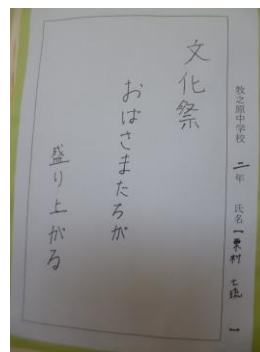 牧之原中学校 二年 氏名 栗村
文化祭
おばさまたちが
盛り上がる